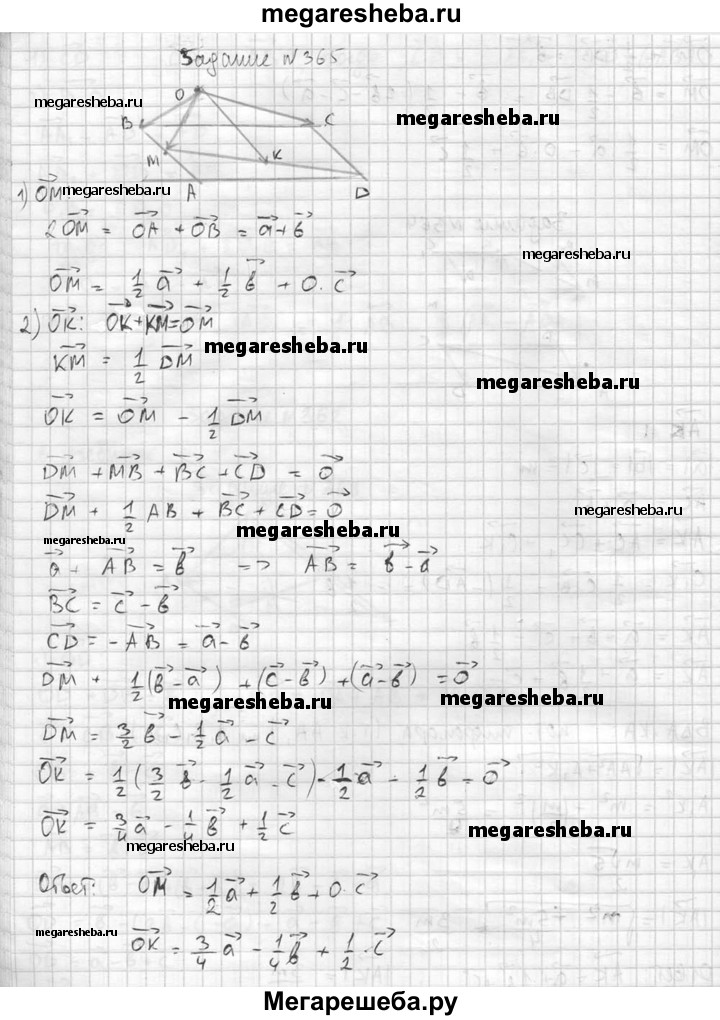 megaresheba.ru
Задание №365
O
megaresheba.ru
B
C
megaresheba.ru
M
K
1) OM⃗:
megaresheba.ru
A
D
2OM⃗ = OA⃗ + OB⃗ = a⃗ + b⃗
megaresheba.ru
OM⃗ = 1/2 a⃗ + 1/2 b⃗ + 0·c⃗
2) OK⃗: OK⃗ + KM⃗ = OM⃗
megaresheba.ru
KM⃗ = 1/2 DM⃗
megaresheba.ru
OK⃗ = OM⃗ - 1/2 DM⃗
DM⃗ + MB⃗ + BC⃗ + CD⃗ = 0⃗
DM⃗ + 1/2 AB + BC⃗ + CD⃗ = 0⃗
megaresheba.ru
megaresheba.ru
megaresheba.ru
a⃗ + AB⃗ = b⃗ => AB⃗ = b⃗ - a⃗
BC⃗ = c⃗ - b⃗
CD⃗ = -AB⃗ = a⃗ - b⃗
DM⃗ + 1/2(b⃗ - a⃗) + (c⃗ - b⃗) + (a⃗ - b⃗) = 0⃗
megaresheba.ru
megaresheba.ru
DM⃗ = 3/2 b⃗ - 1/2 a⃗ - c⃗
OK⃗ = 1/2(3/2 b⃗ - 1/2 a⃗ - c⃗) - 1/2 a⃗ - 1/2 b⃗ = 0⃗
OK⃗ = 3/4 a⃗ - 1/4 b⃗ + 1/2 c⃗
megaresheba.ru
megaresheba.ru
Ответ: OM⃗ = 1/2 a⃗ + 1/2 b⃗ + 0·c⃗
megaresheba.ru
megaresheba.ru
OK⃗ = 3/4 a⃗ - 1/4 b⃗ + 1/2·c⃗
Мегарешеба.ру